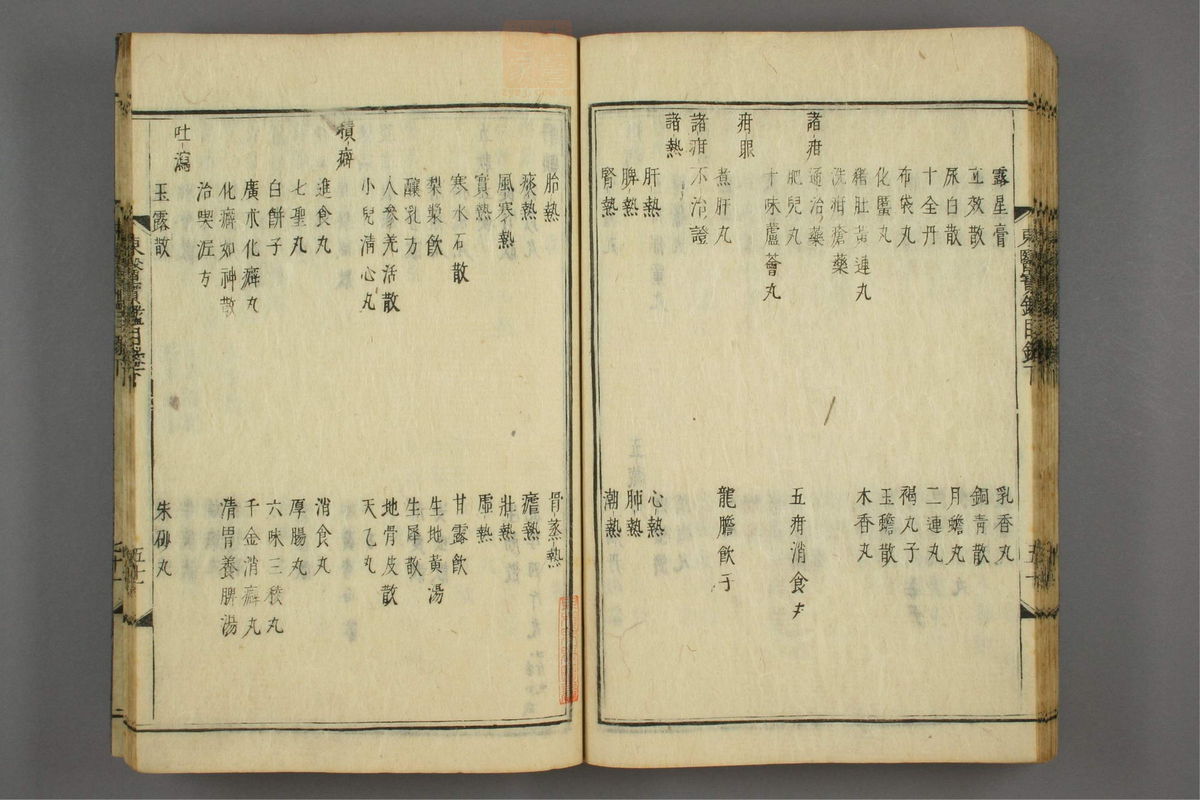 露星膏　乳香丸
立效散　銅青散
尿白散　月蟾丸
十全丹　二連丸
布袋丸　褐丸子
化䘌丸　玉蟾散
猪肚黃連丸　木香丸
洗疳瘡藥
諸疳
通治藥
肥兒丸　五疳消食
十味蘆薈丸
疳眼
煮肝丸　龍膽飲子
諸疳不治證
諸熱
肝熱　心熱
脾熱　肺熱
腎熱　潮熱
胎熱　骨蒸熱
痰熱　瘧熱
風寒熱　壯熱
實熱　虛熱
寒水石散　甘露飮
梨漿飮　生地黃湯
釀乳方　生犀散
人參羌活散　地骨皮散
小兒淸心丸　天乙丸
積癖
進食丸　消食丸
七聖丸　厚腸丸
白餠子　六味三稜丸
廣朮化癖丸　千金消癖丸
化癖如神散　淸胃養脾湯
治喫泥方
吐瀉
玉露散　朱砂丸
東醫寶鑑目錄下
五十